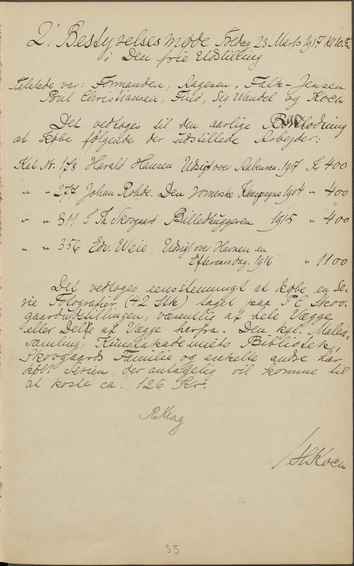 2. Bestyrelsesmøde Fredag 23 Marts 1917 Kl.
i Den frie Udstilling
Tilstede var: Formanden, Aagesen, Falk-Jensen
Poul Christiansen, Sig Wandel og Koch
Det vedtoges til den aarlige Bortlodning
at købe følgende der udstillede Arbejder:
Kat Nr. 173 Harald Hansen Udsigt over 1917 Kr 400
" - 274 Johan Rohde. Den 1904 - 400
" - 311 J Th Skovgaard Billedhuggeren 1915 - 400
" - 356 Edv. Weie Udsigt over Havnen en
Eftermiddag. 1916 " 1100
Det vedtoges eenstemmigt at købe en Se-
rie Fotografier (42 Stk) taget paa J. F. Skov-
gaardudstillingen, væsentlig af hele Vægge
eller Dele af Vægge herfra. Den kgl. Maleri-
samling, Kunstakademiets Bibliothek,
Skovgaards Familie og enkelte andre har
købt Serien, der antagelig vil komme til
at koste ca. 126 Kr.
HKoch
55